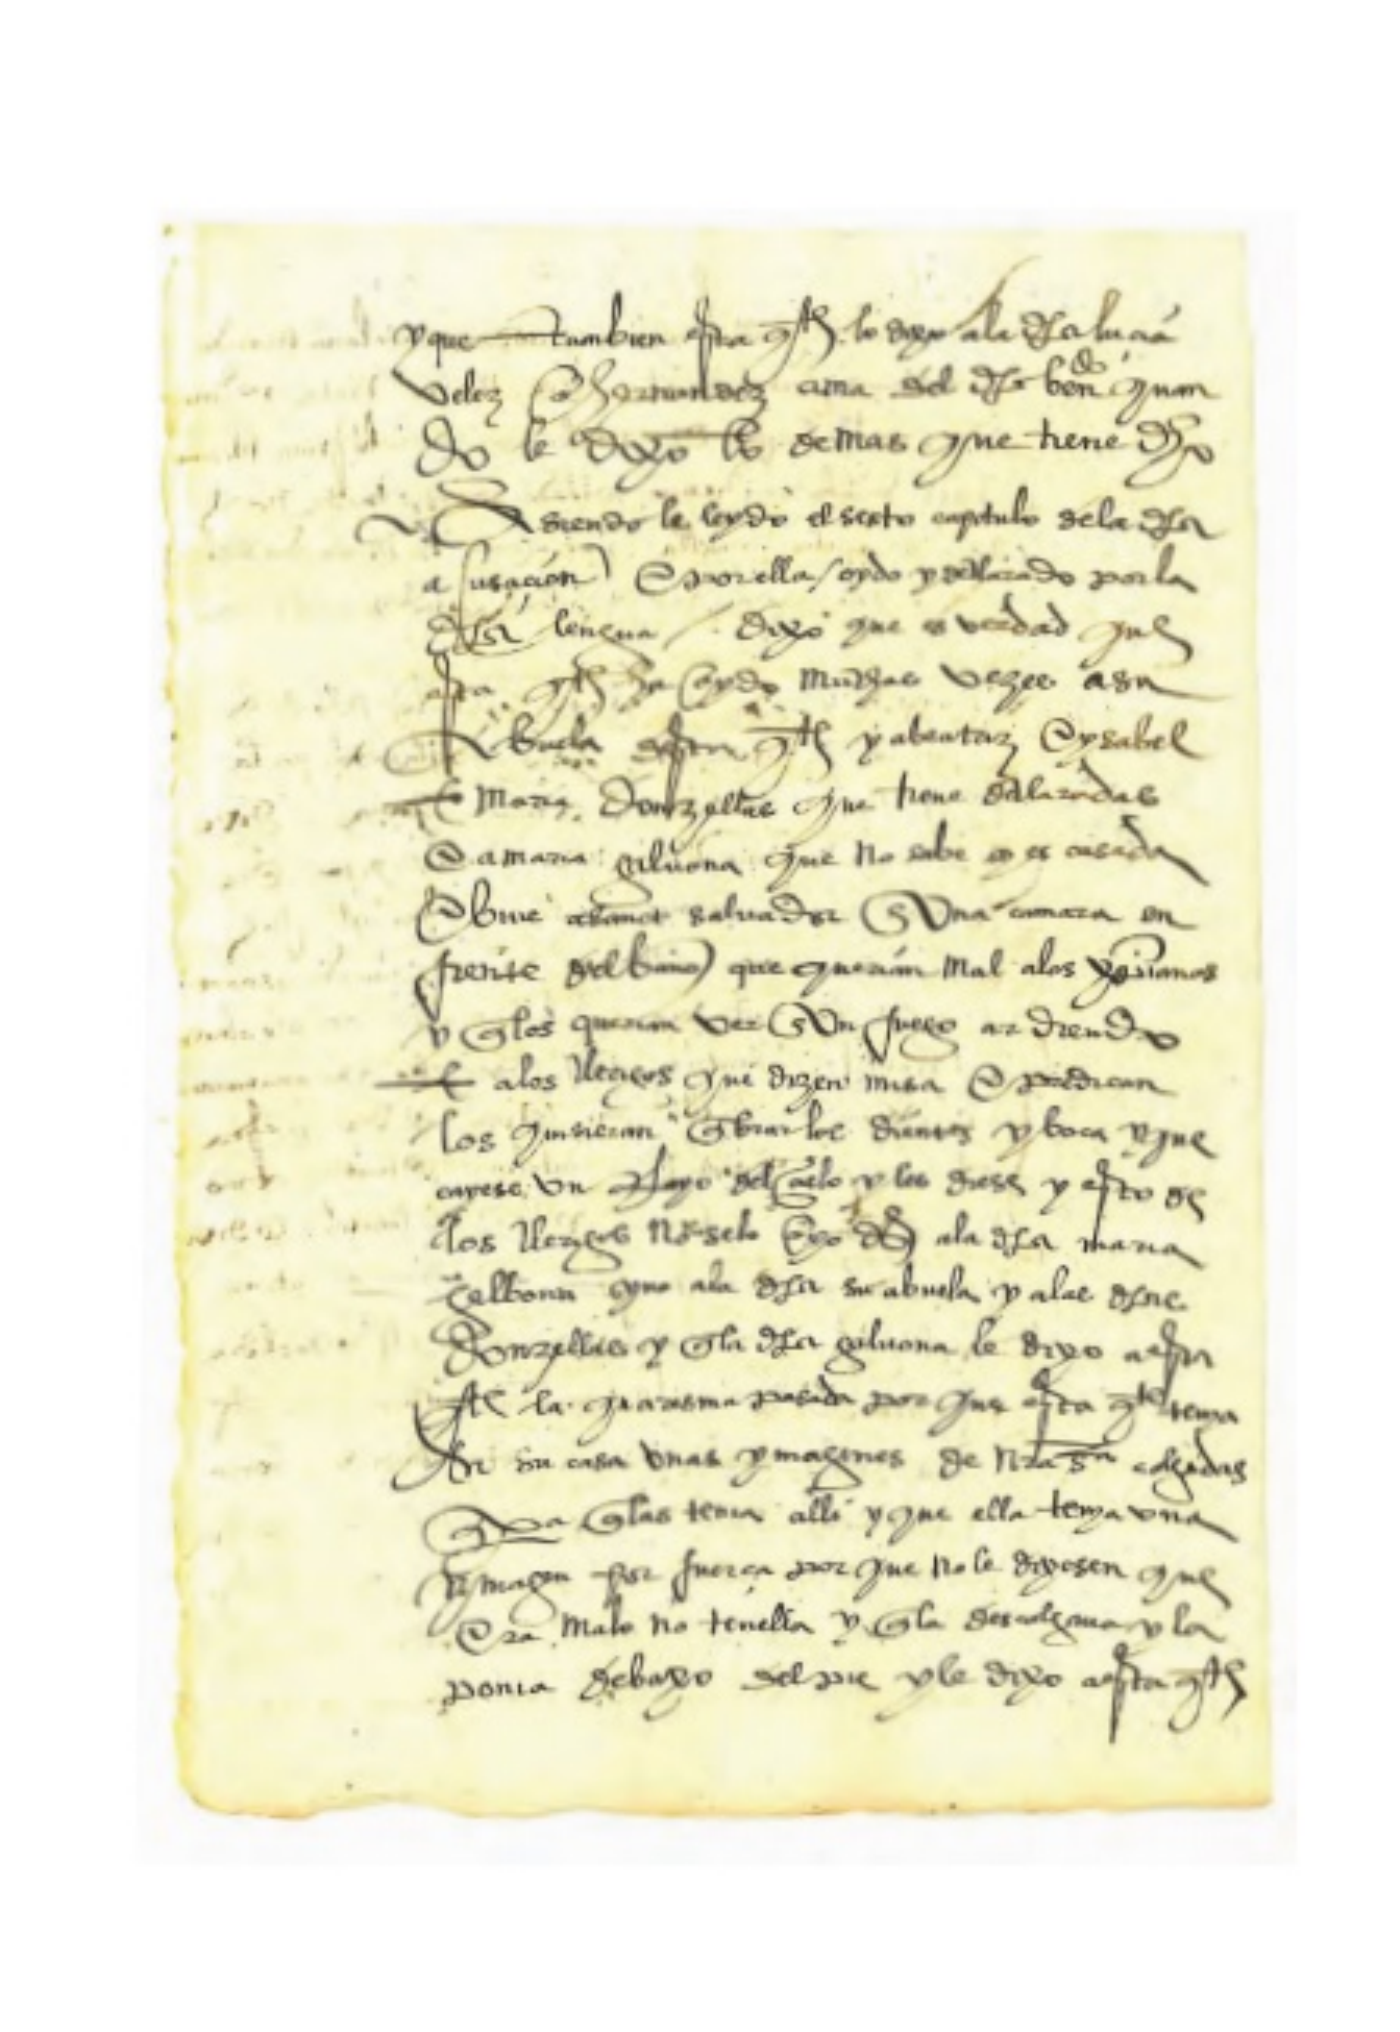 y que tambien esta qfh lo dixo a la dha lucia
Velez hernandez ama del dho ben do quan
do le dixo lo demas que tiene dho
siendo le leydo el sesto capitulo de la dha
acusacion E por ella oydo y declarado por la
dha lengua dixo que es verdad que
esta qfh ha oydo muchas vezes a su
Abuela desta qfh y a beatriz E ysabel
E maria donzellas que tiene declaradas
E a maria gilvona que no sabe sy es casada
E bive a sanct salvador en Una camara en
frente del que querian mal a los xpianos
y q los querian ver en Un fuego ardiendo
E a los clerigos que dizen misa E predican
los quisieran qbrar los dientes y boca y que
cayese Un Rayo del cielo y les diese y esto de
los clerigos no se lo oyo dezir a la dha maria
gelbona syno a la dha su abuela y a las dhas
Donzellas y q la dha gilvona le dixo a esta
qfh la quaresma pasada por que esta qfh tenia
En su casa Unas ymagenes de nra sa colgadas
q las tenia alli y que ella tenya una
ymagen por fuerça por que no le dixesen que
Era malo no tenella y q la descolgava y la
ponia debaxo del pie y le dixo a esta qfh